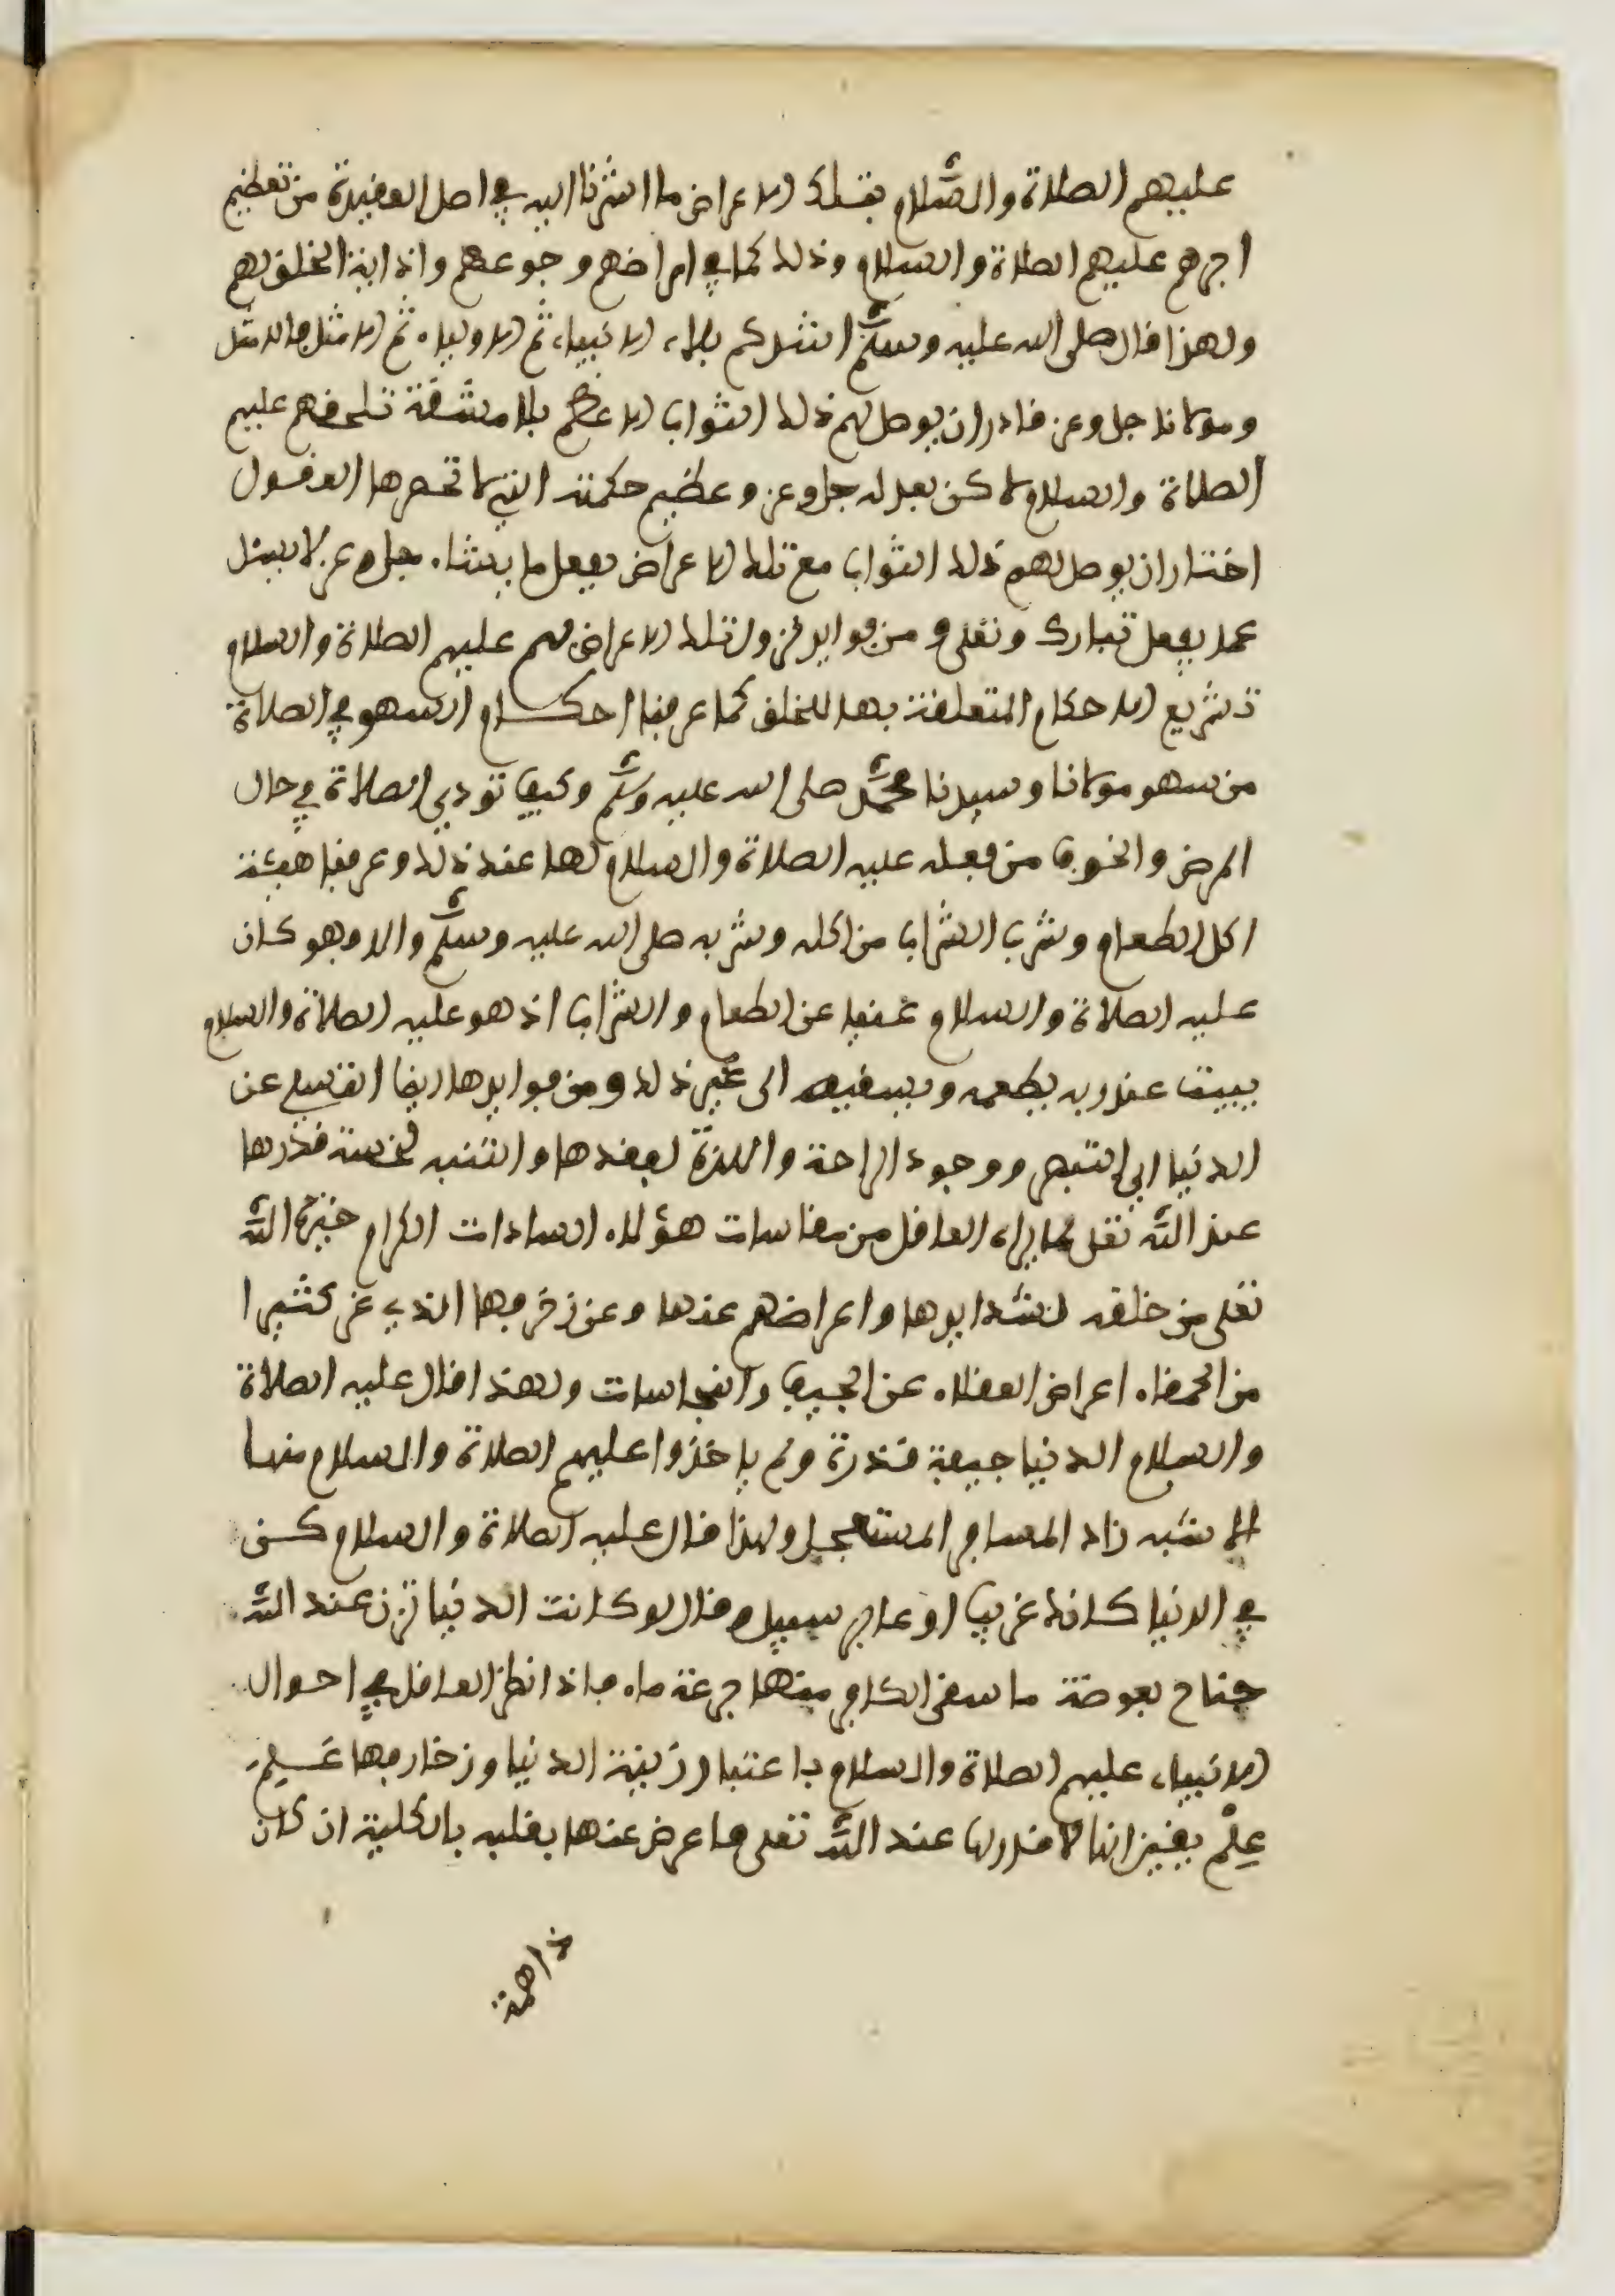 عليهم الصلاة والسلام بتلك الاعراض ما اشرنا اليه في اصل العقيدة من تعظيم
اجرهم عليهم الصلاة والسلام وذلك كما في امراضهم وجوعهم واذاية الخلق لهم
ولهذا قال صلى الله عليه وسلم اشدكم بلاء الانبياء ثم الاولياء ثم الامثل فالامثل
ومولانا جل وعز قادر ان يوصل لهم ذلك الثواب الاعظم بلا مشقة تلحقهم عليهم
الصلاة والسلام لاكن بعدله جل وعز وعظيم حكمته التي لا تحصرها العقول
اختار ان يوصل لهم ذلك الثواب مع تلك الاعراض يفعل ما يشاء جل وعز لا يسئل
عما يفعل تبارك وتعلى ومن فوايد نزول تلك الاعراض بهم عليهم الصلاة والسلام
تشريع الاحكام المتعلقة بها للخلق كما عرفنا احكام السهو في الصلاة
من سهو مولانا وسيدنا محمد صلى الله عليه وسلم وكيف تؤدى الصلاة في حال
المرض والخوف من فعله عليه الصلاة والسلام لها عند ذلك وعرفنا هيئة
اكل الطعام وشرب الشراب من اكله وشربه صلى الله عليه وسلم والا وهو كان
عليه الصلاة والسلام غنيا عن الطعام والشراب اذ هو عليه الصلاة والسلام
يبيت عند ربه يطعمه ويسقيه الى غير ذلك ومن فوايدها ايضا التسلي عن
الدنيا اي التبصر ووجود الراحة واللذة لفقدها والتنبه لخسة قدرها
عند الله تعلى بما يراه العاقل من مقاسات هؤلاء السادات الكرام خيرة الله
تعلى من خلقه لشدايدها واعراضهم عنها وعن زخرفها الذي غر كثيرا
من الحمقاء اعراض العقلاء عن الجيف والنجاسات ولهذا قال عليه الصلاة
والسلام الدنيا جيفة قذرة ولم ياخذوا عليهم الصلاة والسلام منها
الا شبه زاد المسافر المستعجل ولهذا قال عليه الصلاة والسلام كن
في الدنيا كانك غريب او عابر سبيل وقال لو كانت الدنيا تزن عند الله
جناح بعوضة ما سقى الكافر منها جرعة ماء فاذا نظر العاقل في احوال
الانبياء عليهم الصلاة والسلام باعتبار زينة الدنيا وزخارفها علم
علم يقين انها لا قدر لها عند الله تعلى فاعرض عنها بقلبه بالكلية ان كان
ذا همة